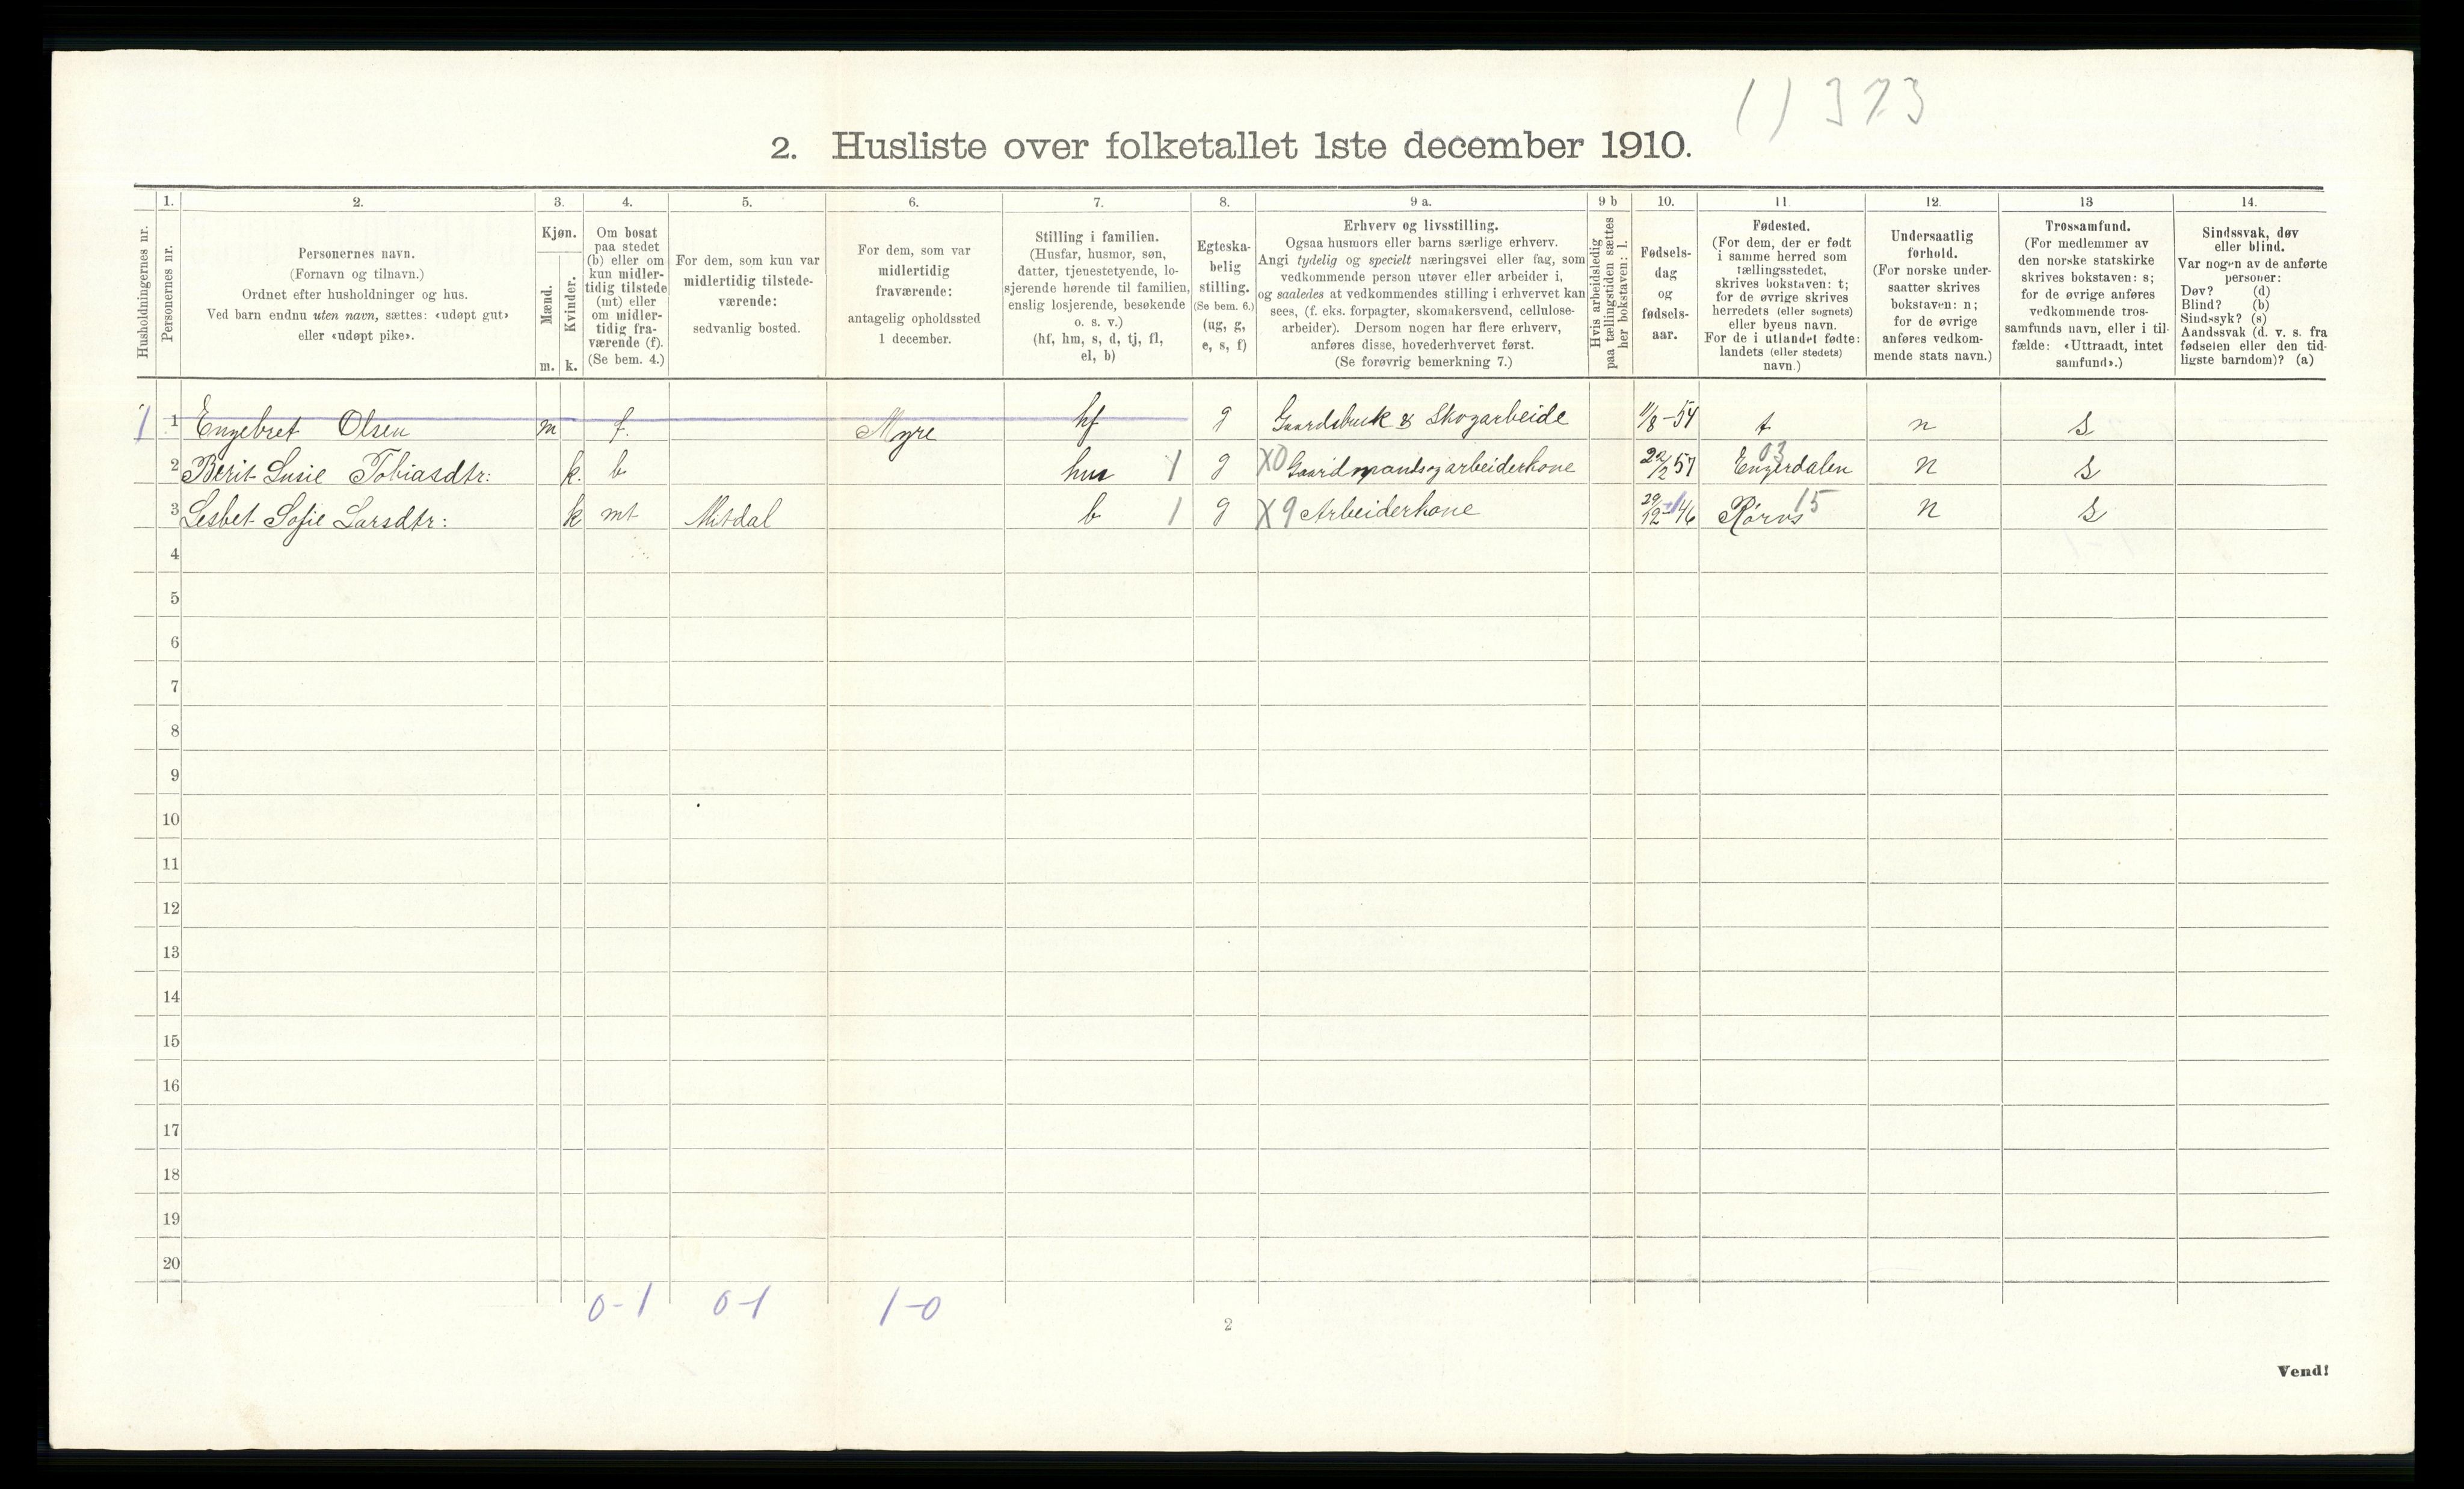 1) 373
2. Husliste over folketallet 1ste december 1910.
1. 2. 3. 4. 5. 6. 7. 8. 9 a. 9 b 10. 11. 12. 13 14.
Husholdningernes nr.
Personernes nr.
Personernes navn.
(Fornavn og tilnavn.)
Ordnet efter husholdninger og hus.
Ved barn endnu uten navn, sættes: «udøpt gut»
eller «udøpt pike».
Kjøn.
Mænd.
Kvinder.
m. k.
Om bosat
paa stedet
(b) eller om
kun midler-
tidig tilstede
(mt) eller
om midler-
tidig fra-
værende (f).
(Se bem. 4.)
For dem, som kun var
midlertidig tilstede-
værende:
sedvanlig bosted.
For dem, som var
midlertidig
fraværende:
antagelig opholdssted
1 december.
Stilling i familien.
(Husfar, husmor, søn,
datter, tjenestetyende, lo-
sjerende hørende til familien,
enslig losjerende, besøkende
o. s. v.)
(hf, hm, s, d, tj, fl,
el, b)
Egteska-
belig
stilling.
(Se bem. 6.)
(ug, g,
e, s, f)
Erhverv og livsstilling.
Ogsaa husmors eller barns særlige erhverv.
Angi tydelig og specielt næringsvei eller fag, som
vedkommende person utøver eller arbeider i,
og saaledes at vedkommendes stilling i erhvervet kan
sees, (f. eks. forpagter, skomakersvend, cellulose-
arbeider). Dersom nogen har flere erhverv,
anføres disse, hovederhvervet først.
(Se forøvrig bemerkning 7.)
Hvis arbeidsledig
paa tællingstiden sættes
her bokstaven: l.
Fødsels-
dag
og
fødsels-
aar.
Fødested.
(For dem, der er født
i samme herred som
tællingsstedet,
skrives bokstaven: t;
for de øvrige skrives
herredets (eller sognets)
eller byens navn.
For de i utlandet fødte:
landets (eller stedets)
navn.)
Undersaatlig
forhold.
(For norske under-
saatter skrives
bokstaven: n;
for de øvrige
anføres vedkom-
mende stats navn.)
Trossamfund.
(For medlemmer av
den norske statskirke
skrives bokstaven: s;
for de øvrige anføres
vedkommende tros-
samfunds navn, eller i til-
fælde: «Uttraadt, intet
samfund».)
Sindssvak, døv
eller blind.
Var nogen av de anførte
personer:
Døv? (d)
Blind? (b)
Sindssyk? (s)
Aandssvak (d. v. s. fra
fødselen eller den tid-
ligste barndom)? (a)
1 1 Engebret Olsen m f. Myre hf g Gaardsbruk & Skogarbeide 11/8-54 t n s
2 Berit Susie Tobiasdtr: k. b 1 g X0 Gaardmands og arbeiderkone 22/2 57 Engerdalen 03 n s
3 Lesbet Sofie Larsdtr: k mt Mitdal b 1 g X9 Arbeiderkone 29/12-46 Rørvs 15 n s
4
5
6
7
8
9
10
11
12
13
14
15
16
17
18
19
20
0-1 0-1 1-0
2
Vend!